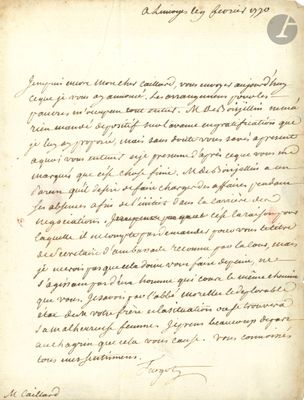 A Limoges le 9 fevrier 1770
Je ne puis encore Mon cher Caillard, vous envoyer aujourd'huy
ce que je vous ay annoncé. Les arrangemens pour les
pauvres m'occupent tout entier. M. De Boisgelin ne m'a
rien mandé de positif sur l'avance en gratification que
je luy ay proposé, mais sans doute vous savés apresent
a quoi vous en tenir et je presume d'après ce que vous me
marqués que c'est chose finie. M. De Boisgelin a un
qu'il desire de faire charger des affaires pendant
ses absences afin de l'initier dans la carriere des
negociations, c'est la raison pour
laquelle il ne compte pas demander pour vous le titre
de Secretaire d'ambassade reconnu par la Cour, mais
je ne vois pas que cela doive vous faire de peine, ne
s'agissant pas d'un homme qui coure le même chemin
que vous. Je savois par l'abbé Morellet le deplorable
état de votre frère et la situation où se trouvera
sa malheureuse femme. Je prens beaucoup de part
au chagrin que cela vous cause. Vous connoissés
tous mes sentimens.
Turgot
M Caillard